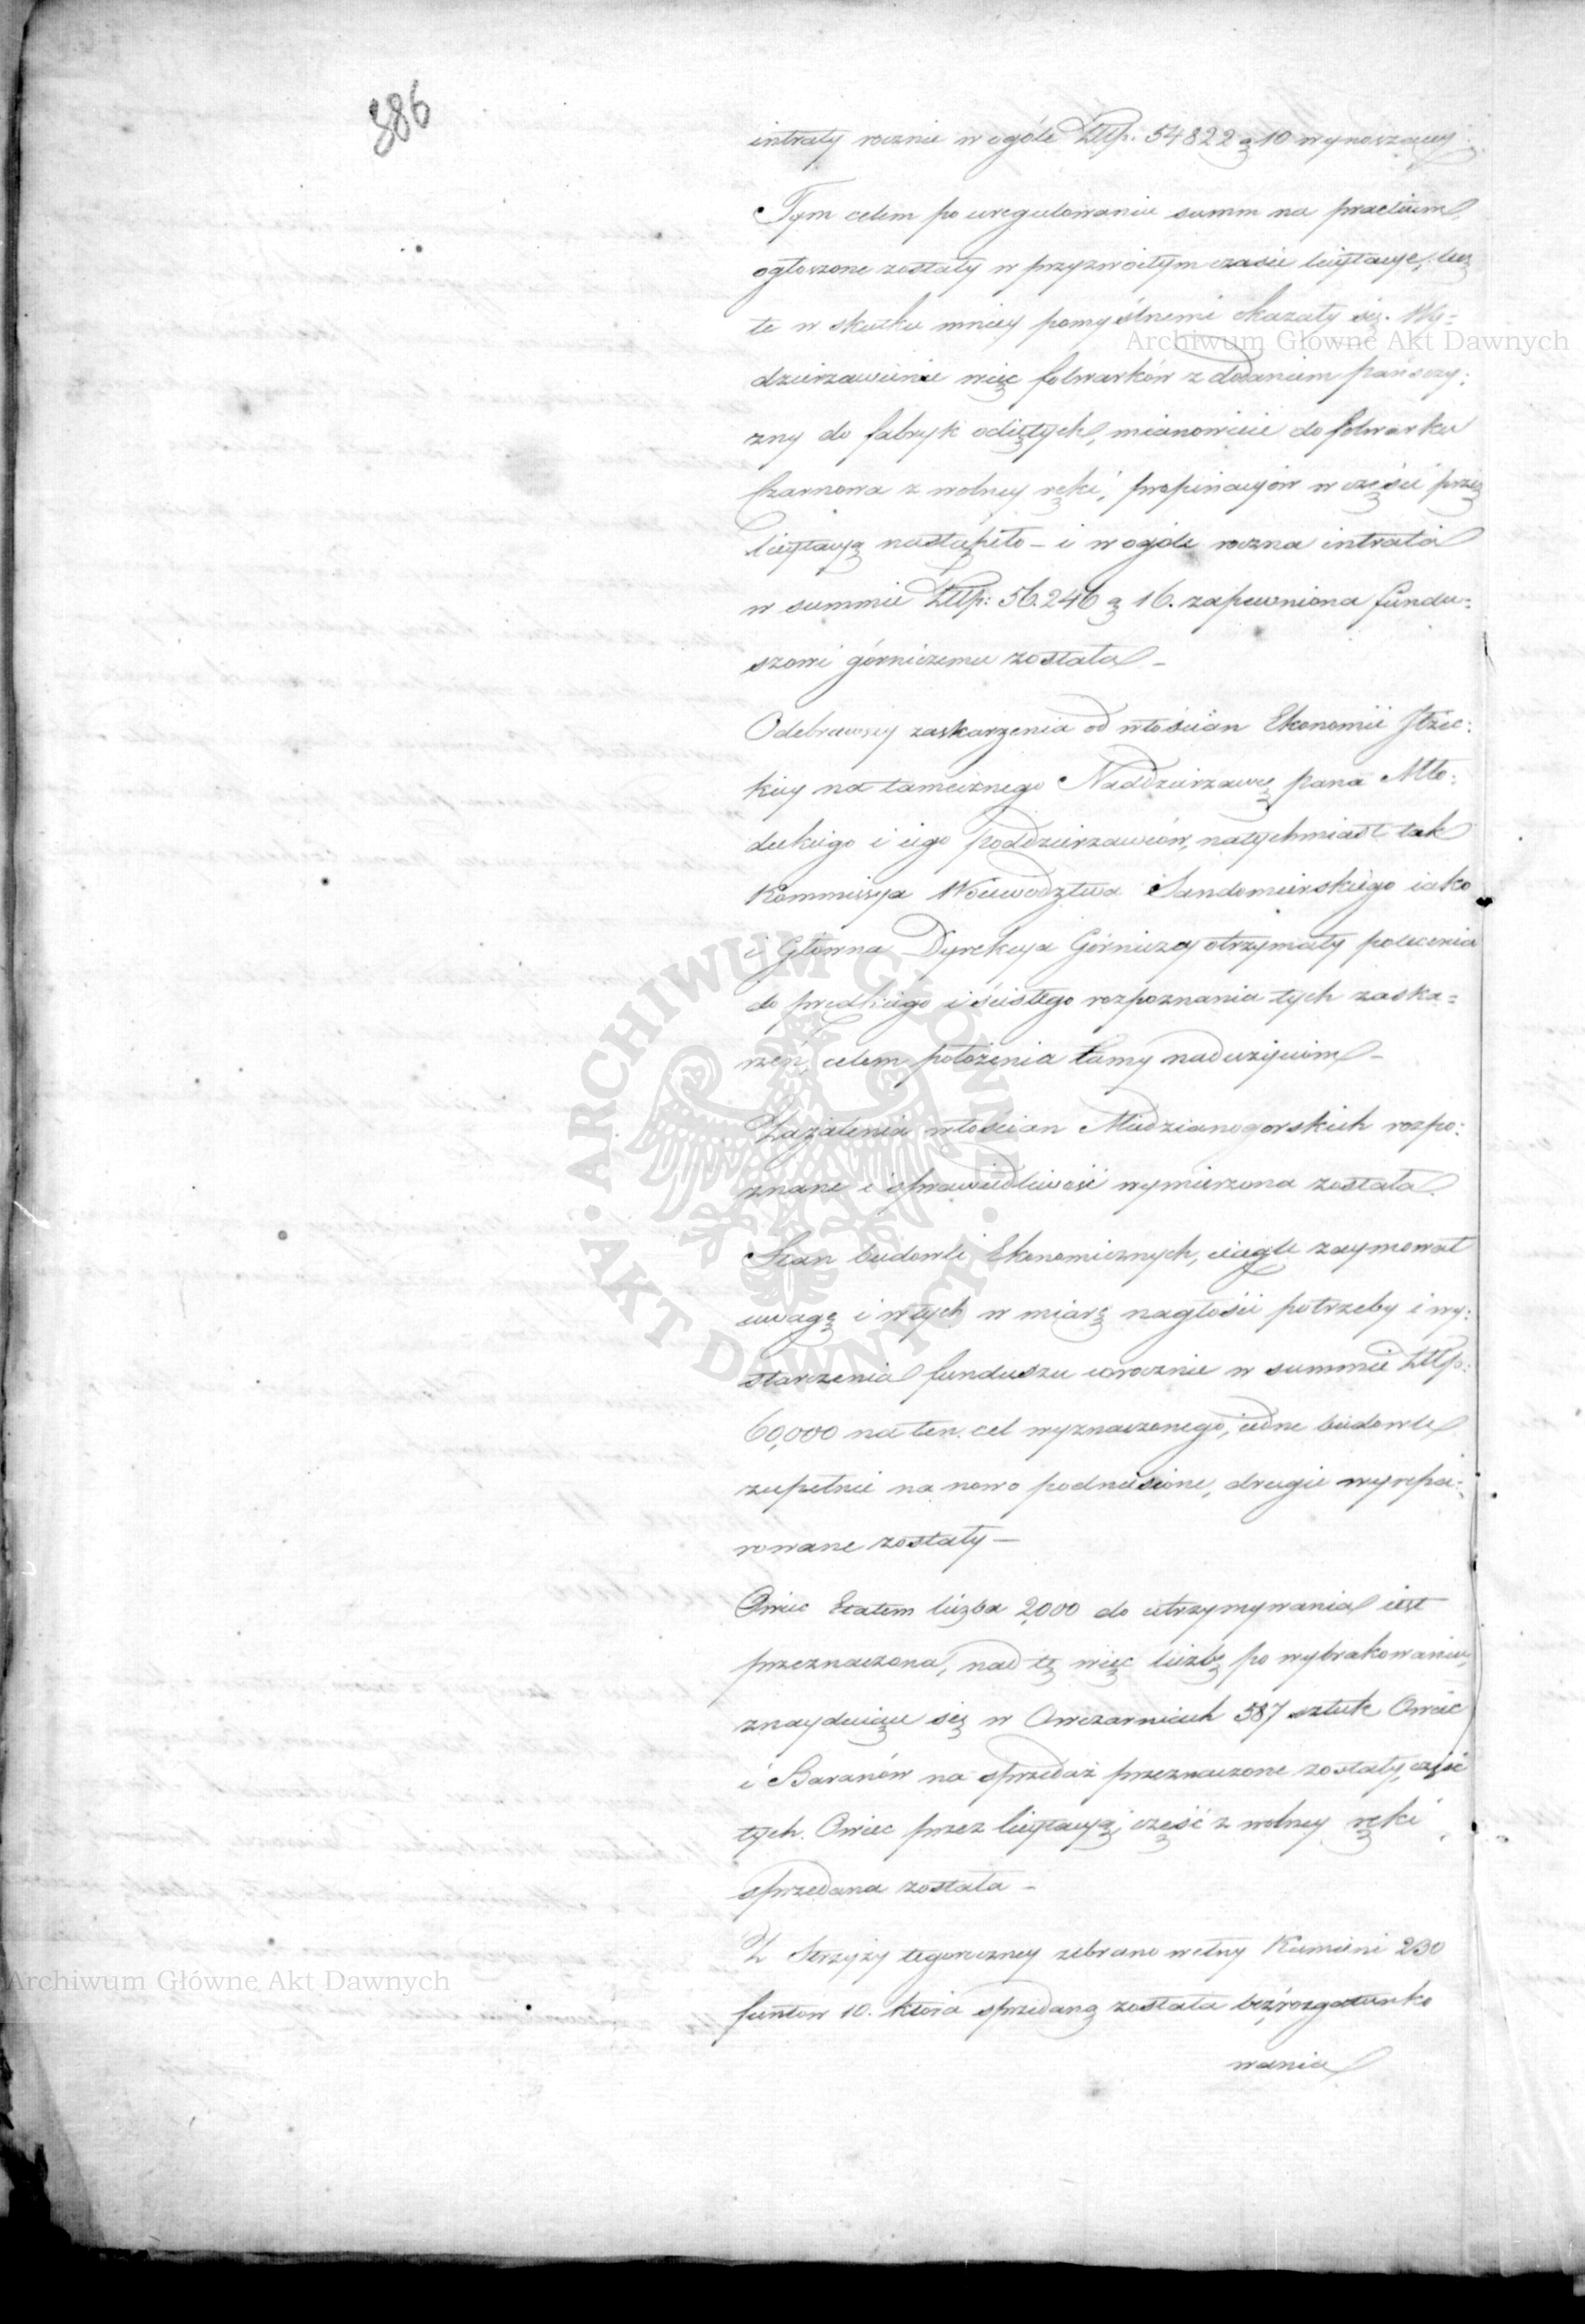 386
intraty rocznie w ogóle Złłp. 54822 g 10 wynoszącey
Tym celem po uregulowaniu summ na praetium,
ogłoszone zostały w przyzwoitym czasie licytacye, lecz
te w skutku mniey pomyślnemi okazały się. Wy=
dzierzawienie więc folwarków z dodaniem pańszczy:
zny do fabryk odiętych, mianowicie do folwarku
Czarnowa z wolney ręki, propinacyów w części przez
licytacyą nastąpiło – i w ogóle roczna intrata
w summie Złłp: 56.246 g 16. zapewniona fundu=
szowi górniczemu została –
Odebrawszy zaskarzenia od włościan Ekonomii Iłżec:
kiey na tamecznego Naddzierzawcę pana Mło:
deckiego i iego poddzierzawców, natychmiast tak
Kommissya Woiewodztwa Sandomierskiego iako
i Główna Dyrekcya Górnicza otrzymały polecenia
do prędkiego i ścisłego rozpoznania tych zaska=
rzeń, celem położenia tamy nadużyciom –
Zażalenia włościan Miedzianogorskich rozpo:
znane i sprawiedliwość wymierzona została.
Stan budowli Ekonomicznych, ciągle zaymował
uwagę i w tych w miarę nagłości potrzeby i wy:
starczenia funduszu corocznie w summie Złłp:
60,000 na ten cel wyznaczonego, iedne budowle
zupełnie na nowo podniesione, drugie wyrepa:
rowane zostały –
Owiec Etatem liczba 2000 do utrzymywania iest
przeznaczona, nad tę więc liczbę po wybrakowaniu,
znayduiące się w Owczarniach 587 sztuk Owiec
i Baranów na sprzedaż przeznaczone zostały, część
tych Owiec przez licytacyą, część z wolney ręki
sprzedana została –
Z Strzyży tegoroczney zebrano wełny Kamieni 230
funtow 10. która sprzedaną została bez rozgatunko
wania
Archiwum Główne Akt Dawnych
Archiwum Główne Akt Dawnych
ARCHIWUM GŁÓWNE · AKT DAWNYCH ·